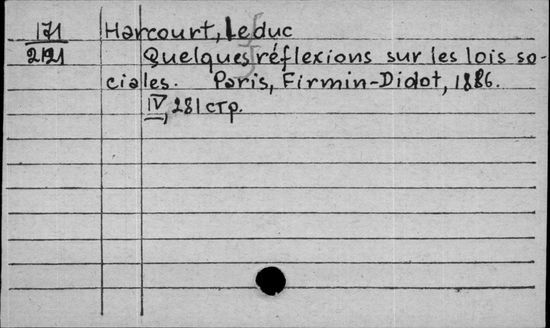 171 Harcourt, le duc
2121 Quelques réflexions sur les lois so-
ciales. Paris, Firmin-Didot, 1886.
IV, 281 стр.